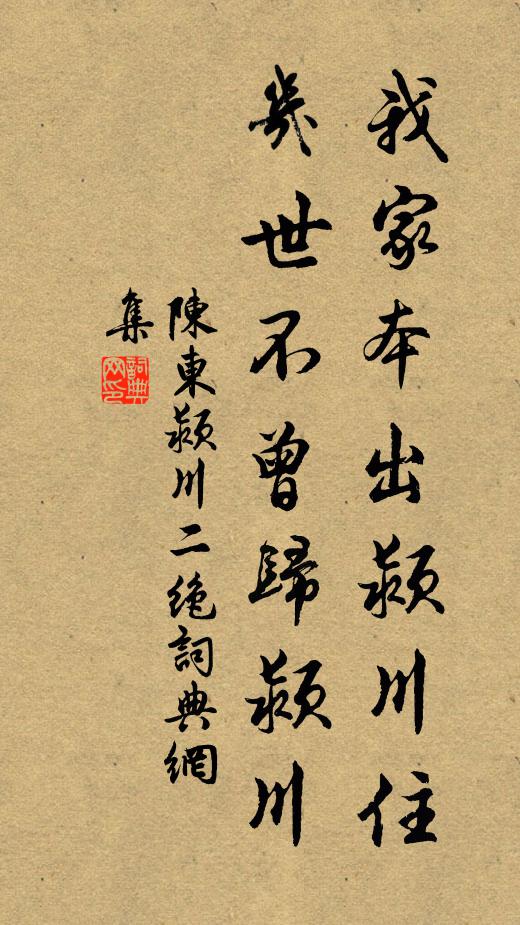 我家本出颍川住
幾世不曾歸颍川
陳東颍川二絶詞典網
集
詞典
网印